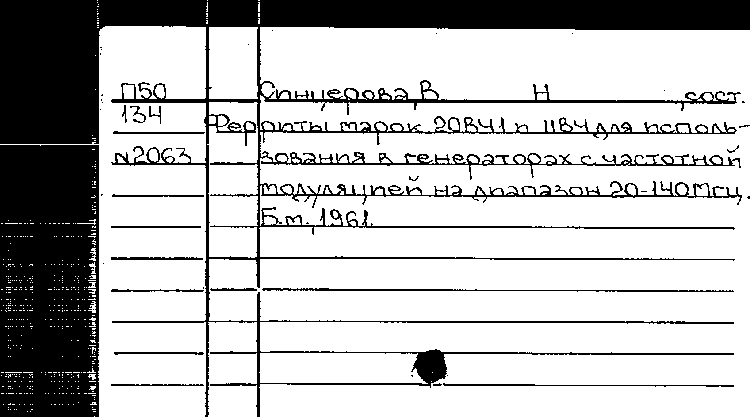 П50 Синцерова, В Н , сост.
134 Ферриты марок 20ВЧ1 и 11ВЧ для исполь-
№2063 зования в генераторах с частотной
модуляцией на диапазон 20-140Мгц.
Б.м., 1961.